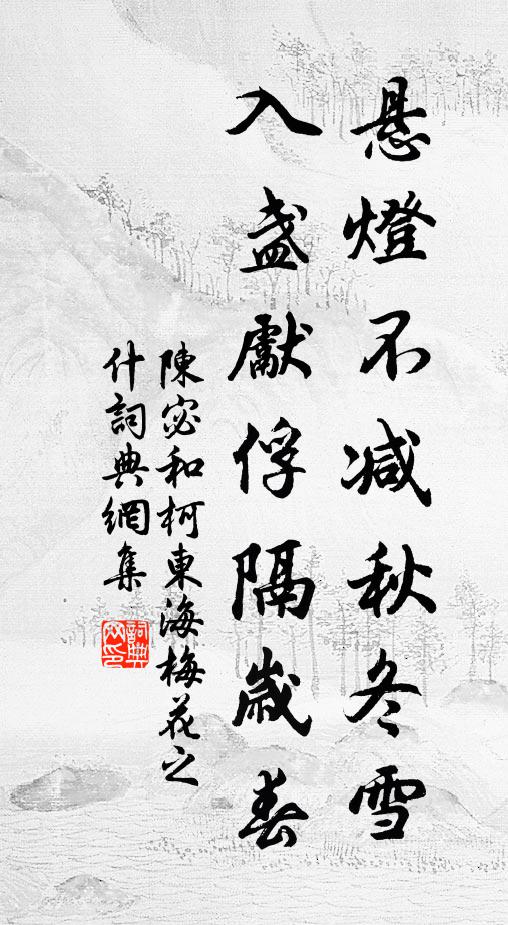 悬燈不减秋冬雪
入盞獻俘隔歲春
陳宓和柯東海梅花之
什詞典網集
詞典
网印